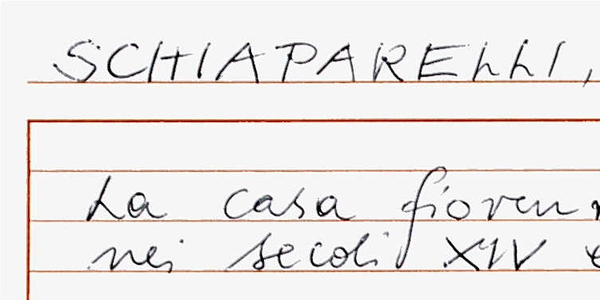 SCHIAPARELLI,
La casa fioren
nei secoli XIV e